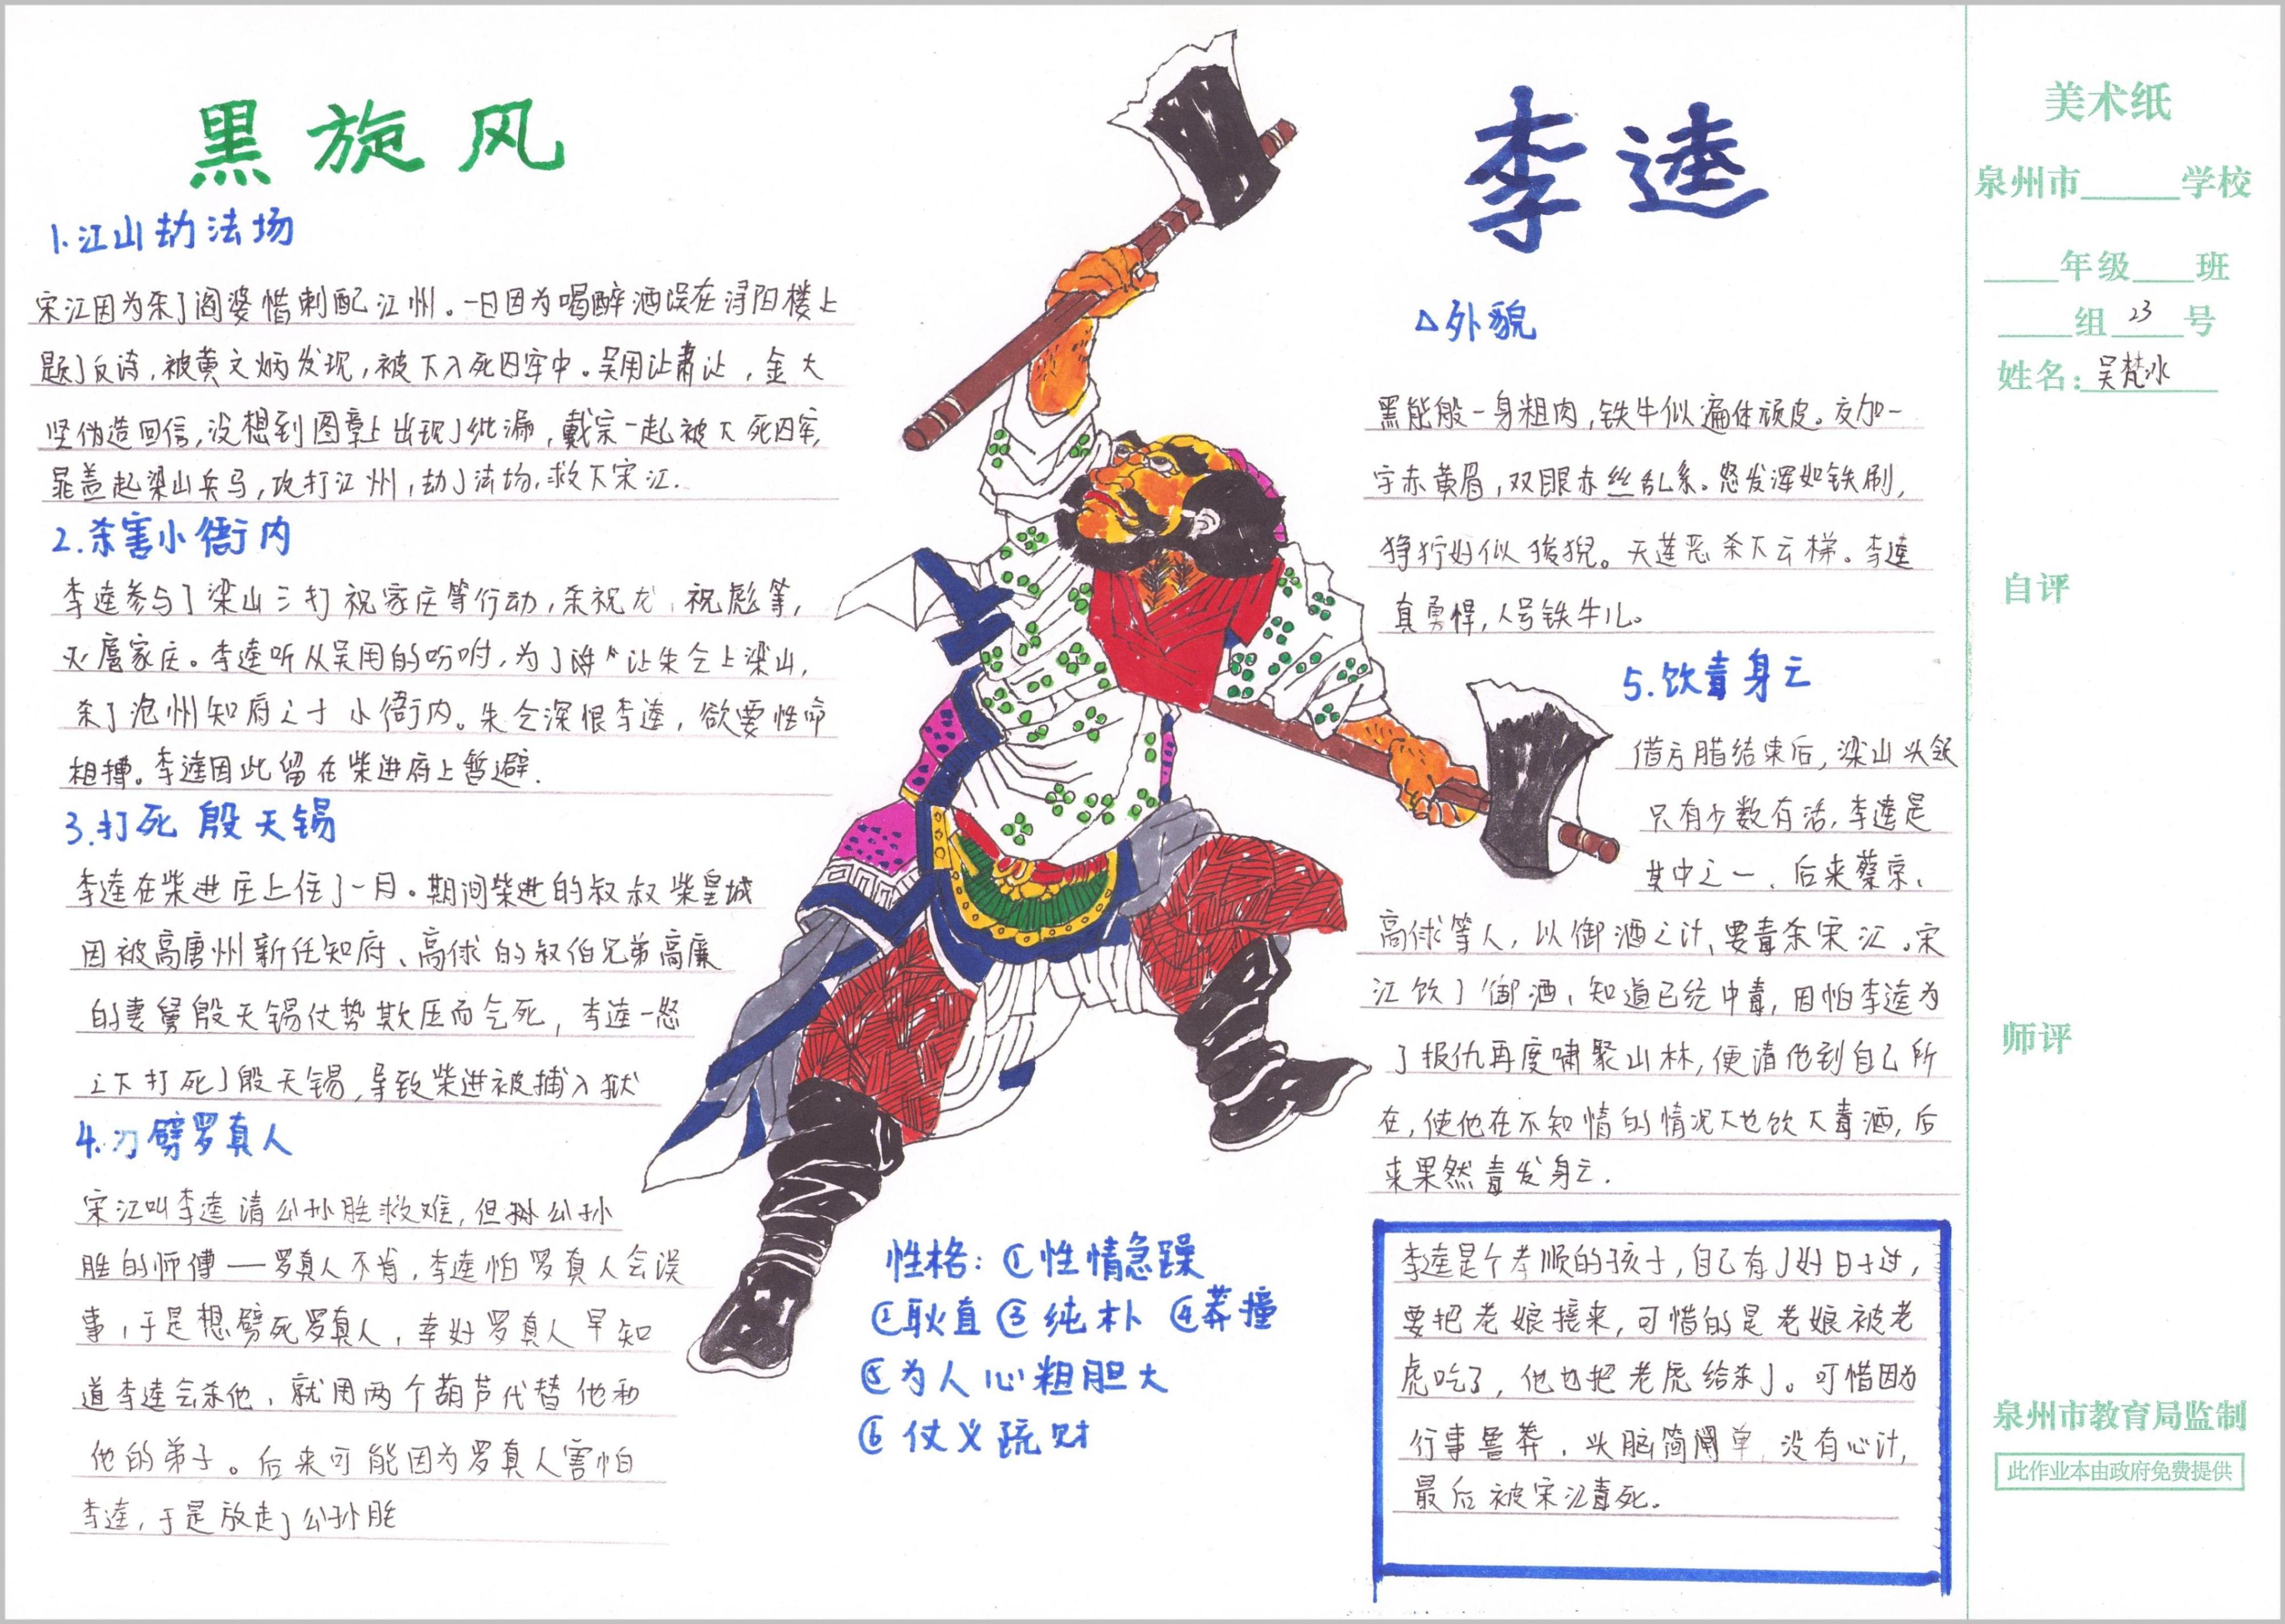 黑旋风
1.江山劫法场
宋江因为杀了阎婆惜刺配江州。一日因为喝醉酒误在浔阳楼上
题了反诗，被黄文炳发现，被下入死囚牢中。吴用让肃让，金大
坚伪造回信，没想到图章上出现了纰漏，戴宗一起被下死囚牢，
晁盖起梁山兵马，攻打江州，劫了法场，救下宋江.
2.杀害小衙内
李逵参与了梁山三打祝家庄等行动，杀祝龙、祝彪等，
灭扈家庄。李逵听从吴用的吩咐，为了 让朱仝上梁山，
杀了沧州知府之子小衙内。朱仝深恨李逵，欲要性命
相搏。李逵因此留在柴进府上暂避.
3.打死殷天锡
李逵在柴进庄上住了一月。期间柴进的叔叔柴皇城
因被高唐州新任知府、高俅的叔伯兄弟高廉
的妻舅殷天锡仗势欺压而气死，李逵一怒
之下打死了殷天锡，导致柴进被捕入狱
4.刀劈罗真人
宋江叫李逵请公孙胜救难，但 公孙
胜的师傅一罗真人不肯，李逵怕罗真人会误
事，于是想劈死罗真人，幸好罗真人早知
道李逵会杀他，就用两个葫芦代替他和
他的弟子。后来可能因为罗真人害怕
李逵，于是放走了公孙胜
性格：①性情急躁
②耿直③纯朴④莽撞
⑤为人心粗胆大
⑥仗义疏财
李逵
△外貌
黑熊般一身粗肉，铁牛似遍体顽皮。交加一
字赤黄眉，双眼赤丝乱系。怒发浑如铁刷，
狰狞好似狻猊。天蓬恶杀下云梯。李逵
真勇悍，人号铁牛儿。
5.饮毒身亡
借方腊结束后，梁山头领
只有少数存活，李逵是
其中之一、后来蔡京、
高俅等人，以御酒之计，要毒杀宋江。宋
江饮了御酒，知道已经中毒，因怕李逵为
了报仇再度啸聚山林，便请他到自己所
在，使他在不知情的情况下也饮下毒酒，后
来果然毒发身亡.
李逵是个孝顺的孩子，自己有了好日子过，
要把老娘接来，可惜的是老娘被老
虎吃了，他也把老虎给杀了。可惜因为
行事鲁莽，头脑简单，没有心计，
最后被宋江毒死。
美术纸
泉州市_____学校
____年级___班
____组 23 号
姓名：吴梵冰
自评
师评
泉州市教育局监制
此作业本由政府免费提供